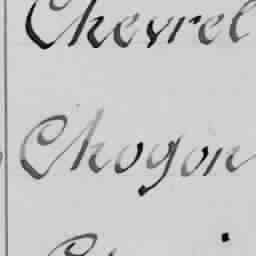 Chevrel
Chogon